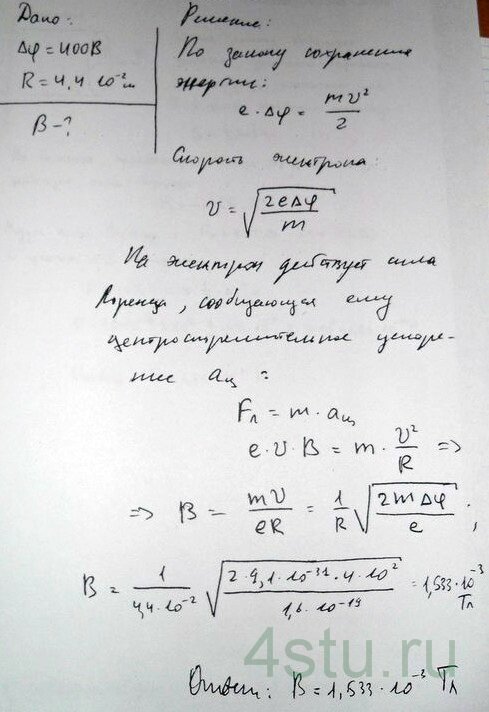 Дано:
Δφ = 400В
R = 4,4·10⁻² м
B - ?
Решение:
По закону сохранения
энергии:
e·Δφ = mv²/2
Скорость электрона:
v = √(2eΔφ/m)
На электрон действует сила
Лоренца, сообщающая ему
центростремительное ускоре-
ние aц:
Fл = m·aц
e·v·B = m·v²/R =>
=> B = mv/eR = 1/R √(2mΔφ/e) ;
B = 1/(4,4·10⁻²) √(2·9,1·10⁻³¹·4·10²/1,6·10⁻¹⁹) = 1,533·10⁻³ Тл
4stu.ru
Ответ: B = 1,533·10⁻³ Тл